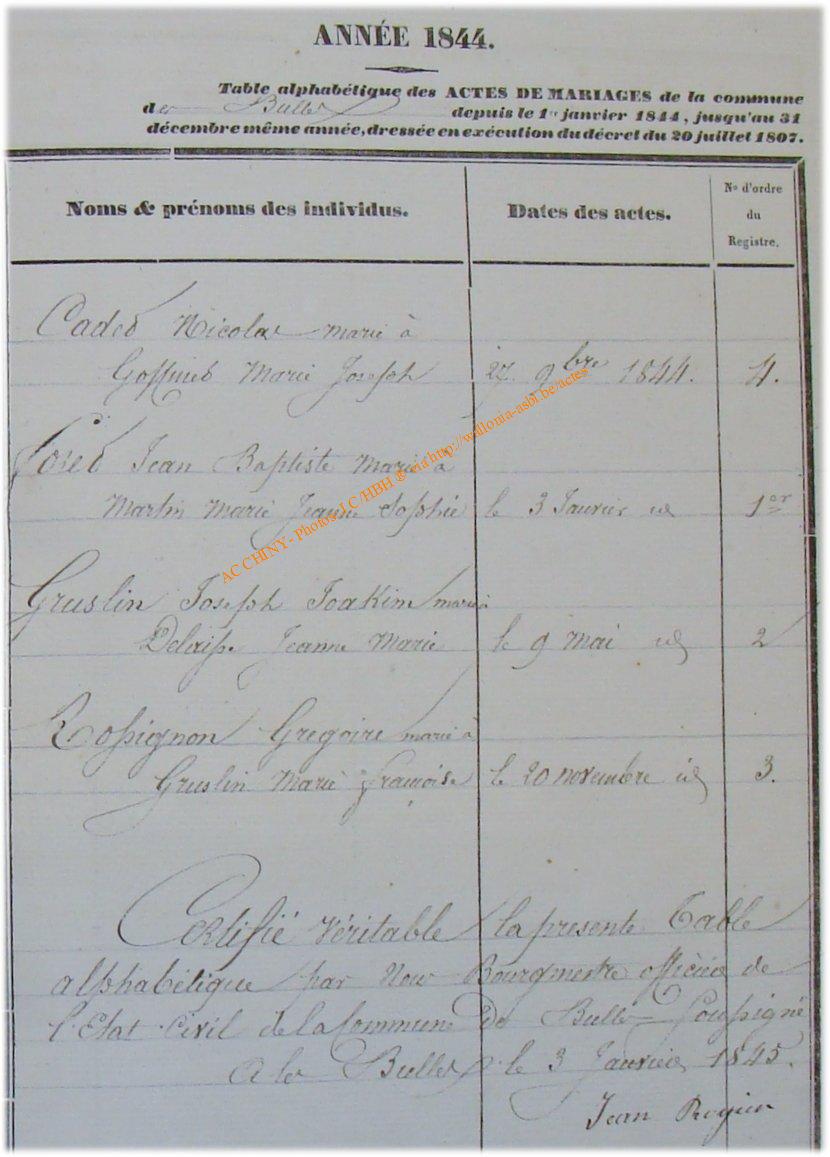 ANNÉE 1844.
Table alphabétique des ACTES DE MARIAGES de la commune
des Bulles depuis le 1er janvier 1844, jusqu'au 31
décembre même année, dressée en exécution du décret du 20 juillet 1807.
Noms & prénoms des individus. Dates des actes. No d'ordre du Registre.
Nicolas marié à
Goffinet Marie Joseph 27 9bre 1844. 4.
Jean Baptiste Marié à
Martin Marie Jeanne Sophie le 3 Janvier id 1er
Gruslin Joseph Joakim marié à
Delaisse Jeanne Marie le 9 mai id 2
Rossignon Gregoire marié à
Gruslin Marie françoise le 20 novembre id 3.
Certifié Véritable la presente Table
alphabétique par Nous Bourgmestre officier de
l'Etat Civil de la Commune De Bulles Soussigné
a les Bulles le 3 Janvier 1845.
Jean
AC CHINY - Photos JLC/HBH ® via http://wallonia-asbl.be/actes